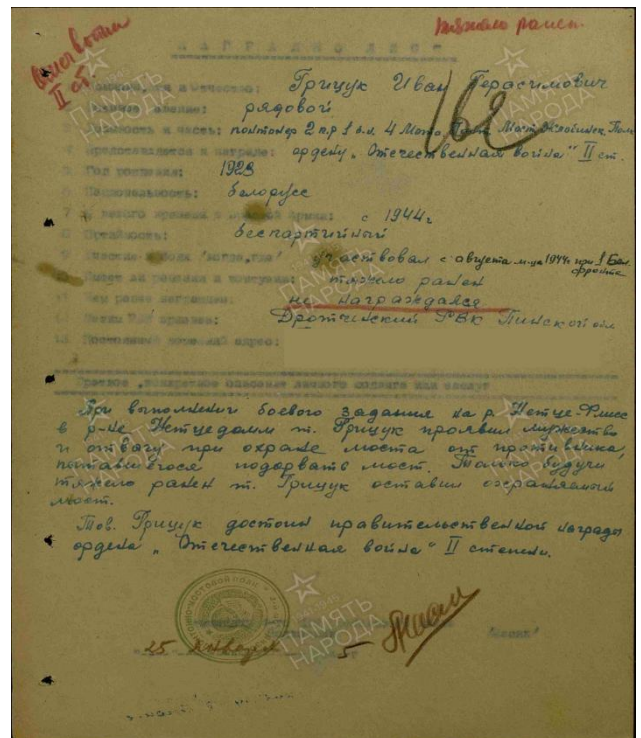 тяжело ранен.
Отечеств. войны
II ст.
НАГРАДНОЙ ЛИСТ
162
Грицук Иван Герасимович
звание: рядовой
3 Должность и часть: понтонер 2 п.р 1 б-н. 4 Мото
4 Представляется к награде: ордену „Отечественная война" II ст.
5 Год рождения: 1923
6 Национальность: белорусс
7 С какого времени в Красной армии: с 1944г
8 Партийность: беспартийный
участвовал с августа м-ца 1944г при 1 Бел.
фронта
тяжело ранен
11 Чем ранее награжден: не награждался
12 Каким РВК призван: Дротчинский РВК Пинской обл
13 Постоянный домашний адрес:
Краткое, конкретное описание личного подвига или заслуг
При выполнении боевого задания на р. Нетце-Флисс
в р-не Нетцедамм т. Грицук проявил мужество
и отвагу при охране моста от противника,
пытавшегося подорвать мост. Только будучи
тяжело ранен т. Грицук оставил охраняемый
мост.
Тов. Грицук достоин правительственной награды
ордена „Отечественная война" II степени.
25 января 5
ПАМЯТЬ
НАРОДА